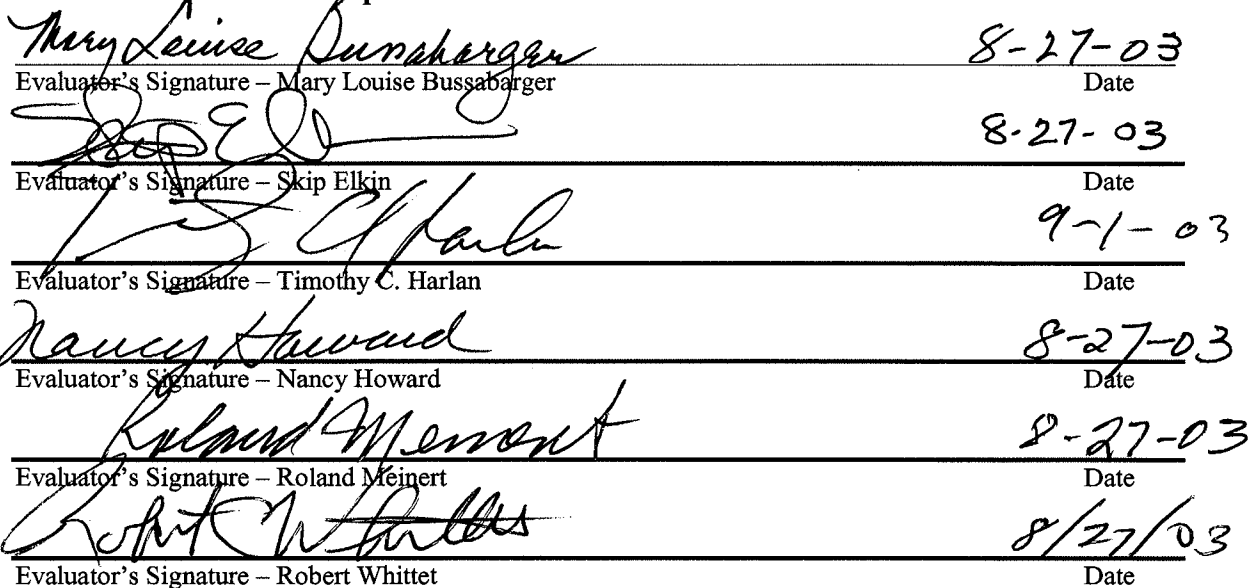 Mary Louise Bussabarger 8-27-03
Evaluator's Signature – Mary Louise Bussabarger Date
Skip Elkin 8-27-03
Evaluator's Signature – Skip Elkin Date
Timothy C Harlan 9-1-03
Evaluator's Signature – Timothy C. Harlan Date
Nancy Howard 8-27-03
Evaluator's Signature – Nancy Howard Date
Roland Meinert 8-27-03
Evaluator's Signature – Roland Meinert Date
Robert C Whittet 8/27/03
Evaluator's Signature – Robert Whittet Date